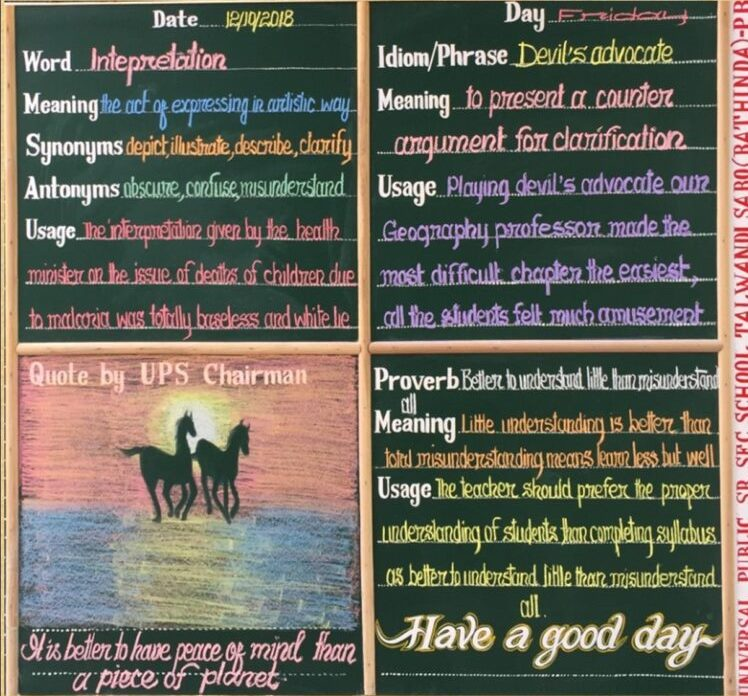 Date 12/10/2018
Word Intepretation
Meaning the act of expressing in artistic way
Synonyms depict, illustrate, describe, clarify
Antonyms obscure, confuse, misunderstand
Usage The interpretation given by the health
minister on the issue of deaths of children due
to malaria was totally baseless and white lie
Day Friday
Idiom/Phrase Devil's advocate
Meaning to present a counter
argument for clarification
Usage Playing devil's advocate our
Geography professor made the
most difficult chapter the easiest,
all the students felt much amusement
Quote by UPS Chairman
It is better to have peace of mind than
a piece of planet
Proverb Better to understand little than misunderstand
all
Meaning Little understanding is better than
total misunderstanding means learn less but well
Usage The teacher should prefer the proper
understanding of students than completing syllabus
as better to understand little than misunderstand
all.
Have a good day
UNIVERSAL PUBLIC SR. SEC. SCHOOL, TALWANDI SABO (BATHINDA)-PB